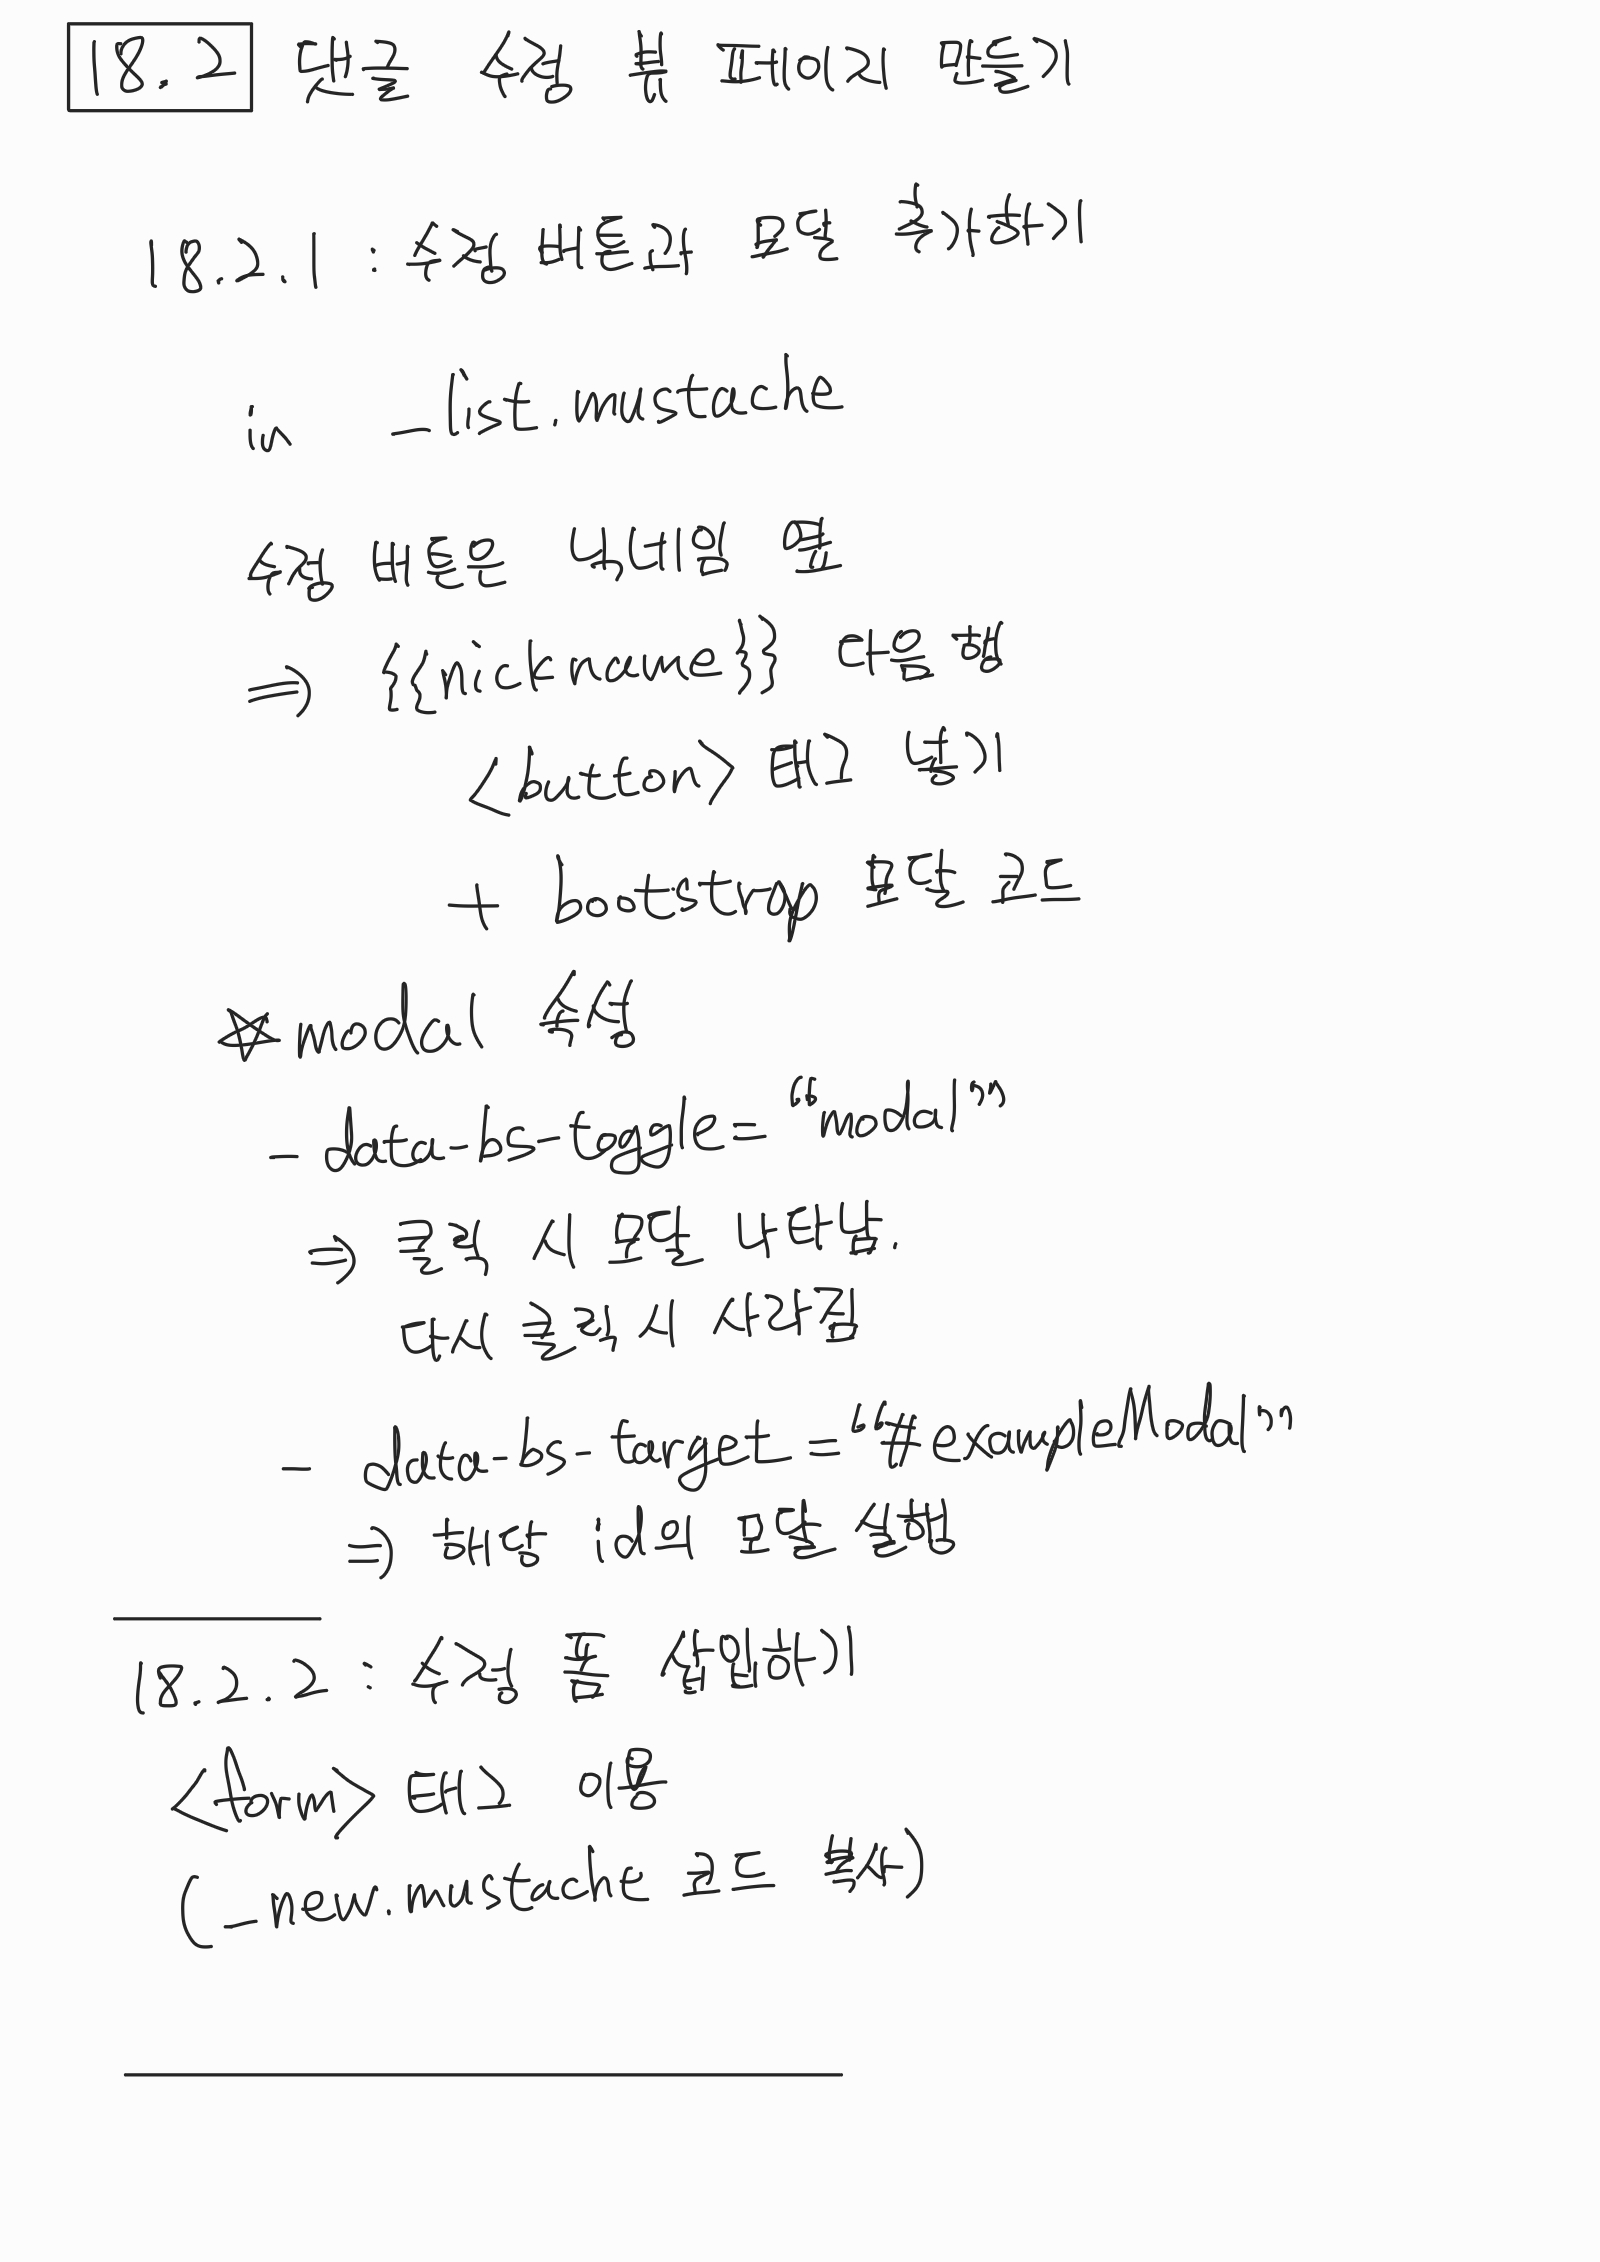 18.2 댓글 수정 뷰 페이지 만들기
18.2.1 : 수정 버튼과 모달 추가하기
in _list.mustache
수정 버튼은 닉네임 옆
⇒ {{nickname}} 다음 행
<button> 태그 넣기
+ bootstrap 모달 코드
☆ modal 속성
- data-bs-toggle = “modal”
⇒ 클릭 시 모달 나타남.
다시 클릭 시 사라짐
- data-bs-target = “#exampleModal”
⇒ 해당 id의 모달 실행
18.2.2 : 수정 폼 삽입하기
<form> 태그 이용
(_new.mustache 코드 복사)